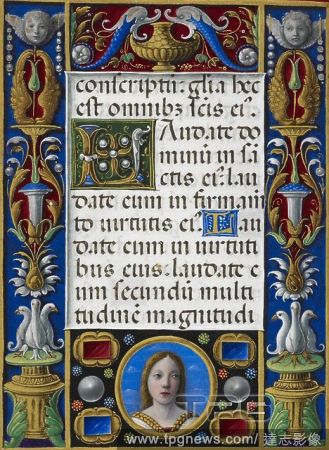 conscriptū: glīa hec
est omnibꝫ scīs eiꝰ.
Laudate do
minū in sā
ctis eiꝰ. lau
date eum in firmam̄
to uirtutis eiꝰ. Lau
date eum in uirtuti
bus euis. laudate e
um secundū multi
tudinē magnitudi
TPG
www.tpgnews.com/達志影像